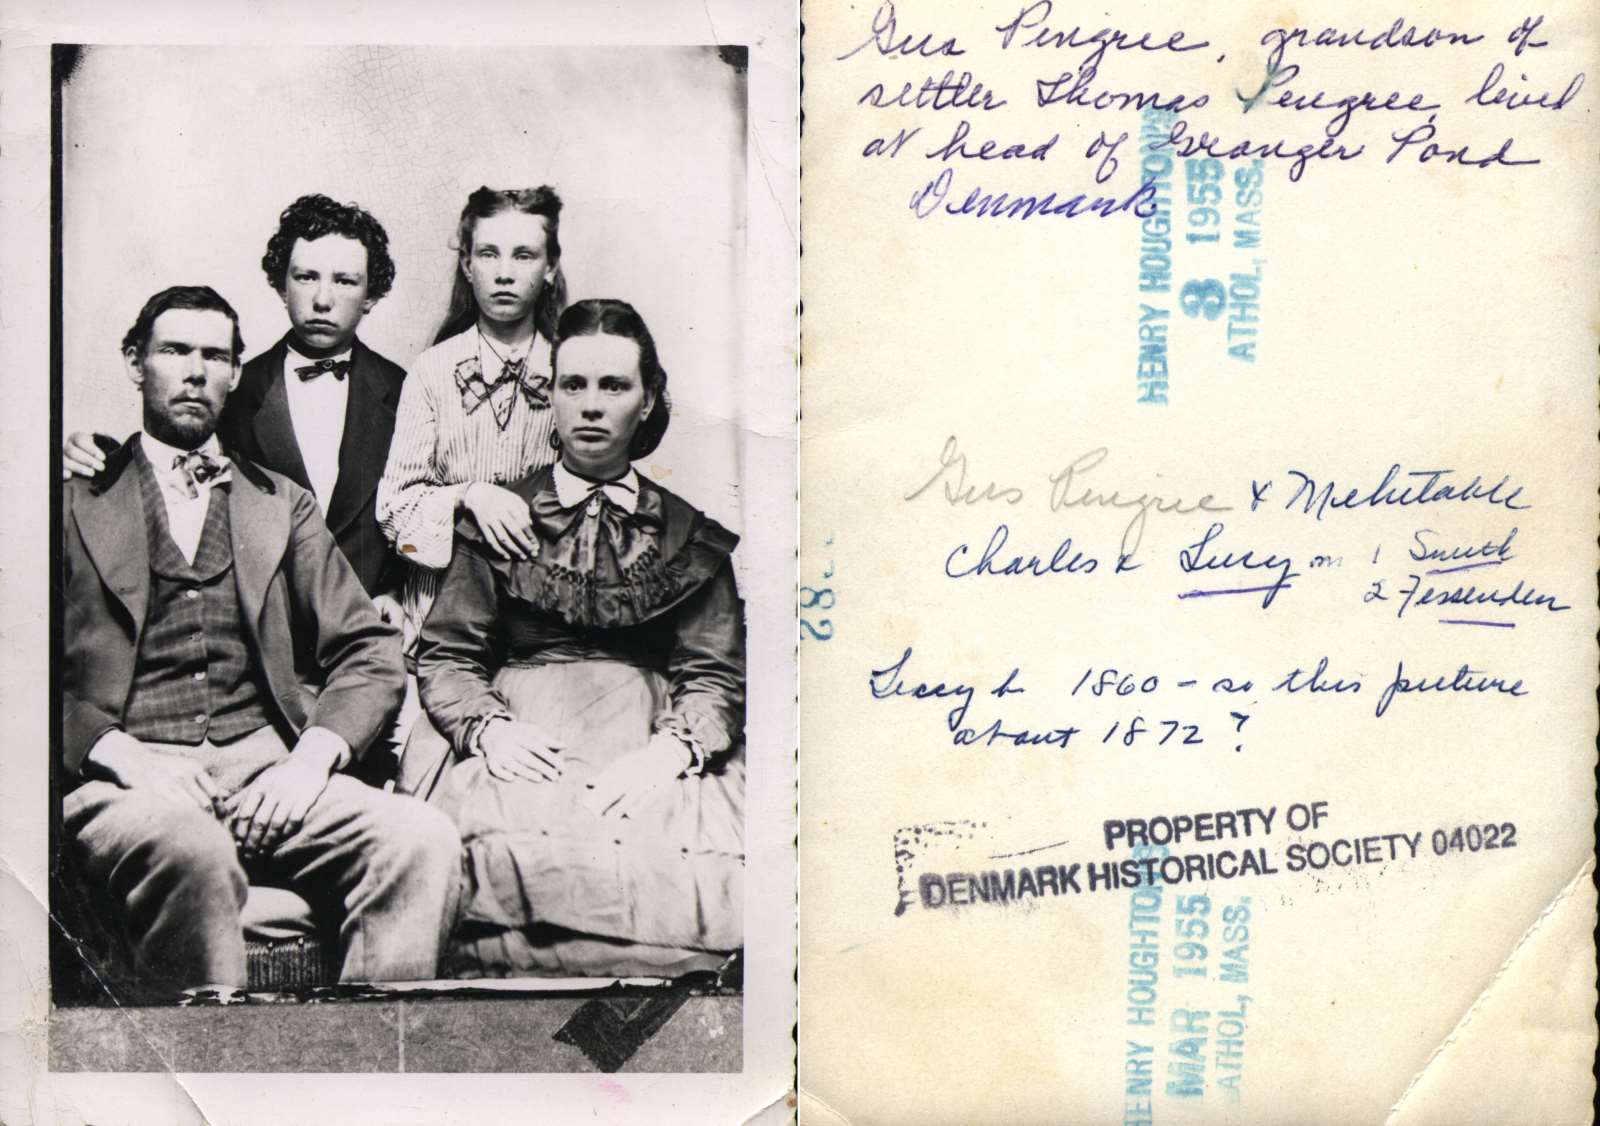 Gus Pingree, grandson of
settler Thomas Pingree, lived
at head of Granger Pond
Denmark
HENRY HOUGHTON'S
8 1955
ATHOL, MASS.
Gus Pingree & Mehitable
Charles & Lucy m 1 Smith
2 Fessenden
Lucy b 1860 - so this picture
about 1872?
PROPERTY OF
DENMARK HISTORICAL SOCIETY 04022
HENRY HOUGHTON'S
MAR 1955
ATHOL, MASS.